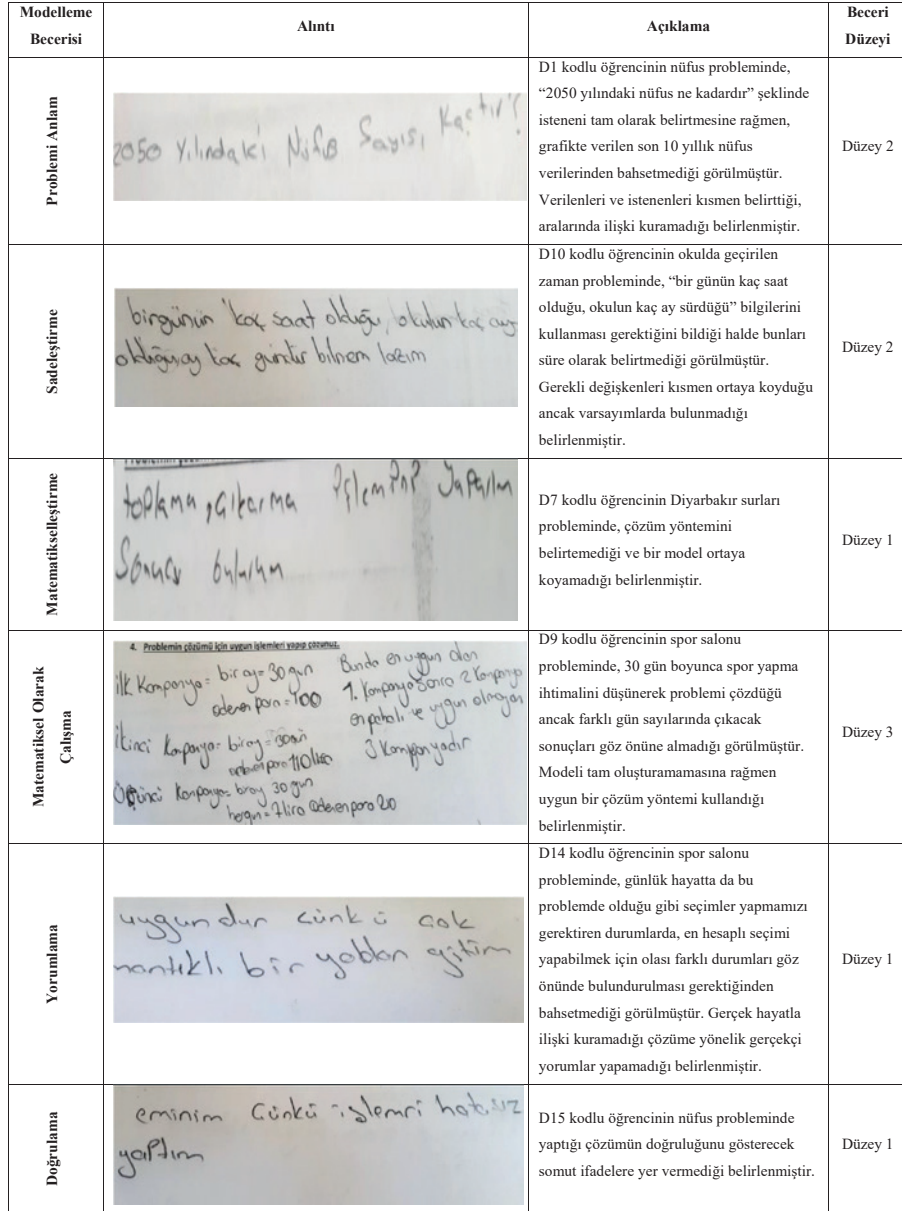 Modelleme
Becerisi
Alıntı
Açıklama
Beceri
Düzeyi
Problemi Anlam
2050 Yılındaki Nüfus Sayısı Kaçtır?
D1 kodlu öğrencinin nüfus probleminde,
“2050 yılındaki nüfus ne kadardır” şeklinde
isteneni tam olarak belirtmesine rağmen,
grafikte verilen son 10 yıllık nüfus
verilerinden bahsetmediği görülmüştür.
Verilenleri ve istenenleri kısmen belirttiği,
aralarında ilişki kuramadığı belirlenmiştir.
Düzey 2
Sadeleştirme
birgünün kaç saat olduğu, okulun kaç ay
olduğu, ay kaç gündür bilmem lazım
D10 kodlu öğrencinin okulda geçirilen
zaman probleminde, “bir günün kaç saat
olduğu, okulun kaç ay sürdüğü” bilgilerini
kullanması gerektiğini bildiği halde bunları
süre olarak belirtmediği görülmüştür.
Gerekli değişkenleri kısmen ortaya koyduğu
ancak varsayımlarda bulunmadığı
belirlenmiştir.
Düzey 2
Matematikselleştirme
toplama, çıkarma işlemini yaparım
Sonucu bulurum
D7 kodlu öğrencinin Diyarbakır surları
probleminde, çözüm yöntemini
belirtemediği ve bir model ortaya
koyamadığı belirlenmiştir.
Düzey 1
Matematiksel Olarak
Çalışma
4. Problemin çözümü için uygun işlemleri yapıp çözünüz.
ilk Kampanya = bir ay = 30 gün
ödenen para = 100
ikinci Kampanya = bir ay = 30 gün
ödenen para 110 lira
Üçüncü Kampanya = bir ay 30 gün
hergün = 7 lira ödenen para 20
Bunda en uygun olan
1. Kampanya sonra 2 Kampanya
en pahalı ve uygun olmayan
3 Kampanyadır
D9 kodlu öğrencinin spor salonu
probleminde, 30 gün boyunca spor yapma
ihtimalini düşünerek problemi çözdüğü
ancak farklı gün sayılarında çıkacak
sonuçları göz önüne almadığı görülmüştür.
Modeli tam oluşturamamasına rağmen
uygun bir çözüm yöntemi kullandığı
belirlenmiştir.
Düzey 3
Yorumlama
uygundur çünkü çok
mantıklı bir yoldan gitim
D14 kodlu öğrencinin spor salonu
probleminde, günlük hayatta da bu
problemde olduğu gibi seçimler yapmamızı
gerektiren durumlarda, en hesaplı seçimi
yapabilmek için olası farklı durumları göz
önünde bulundurulması gerektiğinden
bahsetmediği görülmüştür. Gerçek hayatla
ilişki kuramadığı çözüme yönelik gerçekçi
yorumlar yapamadığı belirlenmiştir.
Düzey 1
Doğrulama
eminim Çünkü işlemri hatasız
yaptım
D15 kodlu öğrencinin nüfus probleminde
yaptığı çözümün doğruluğunu gösterecek
somut ifadelere yer vermediği belirlenmiştir.
Düzey 1